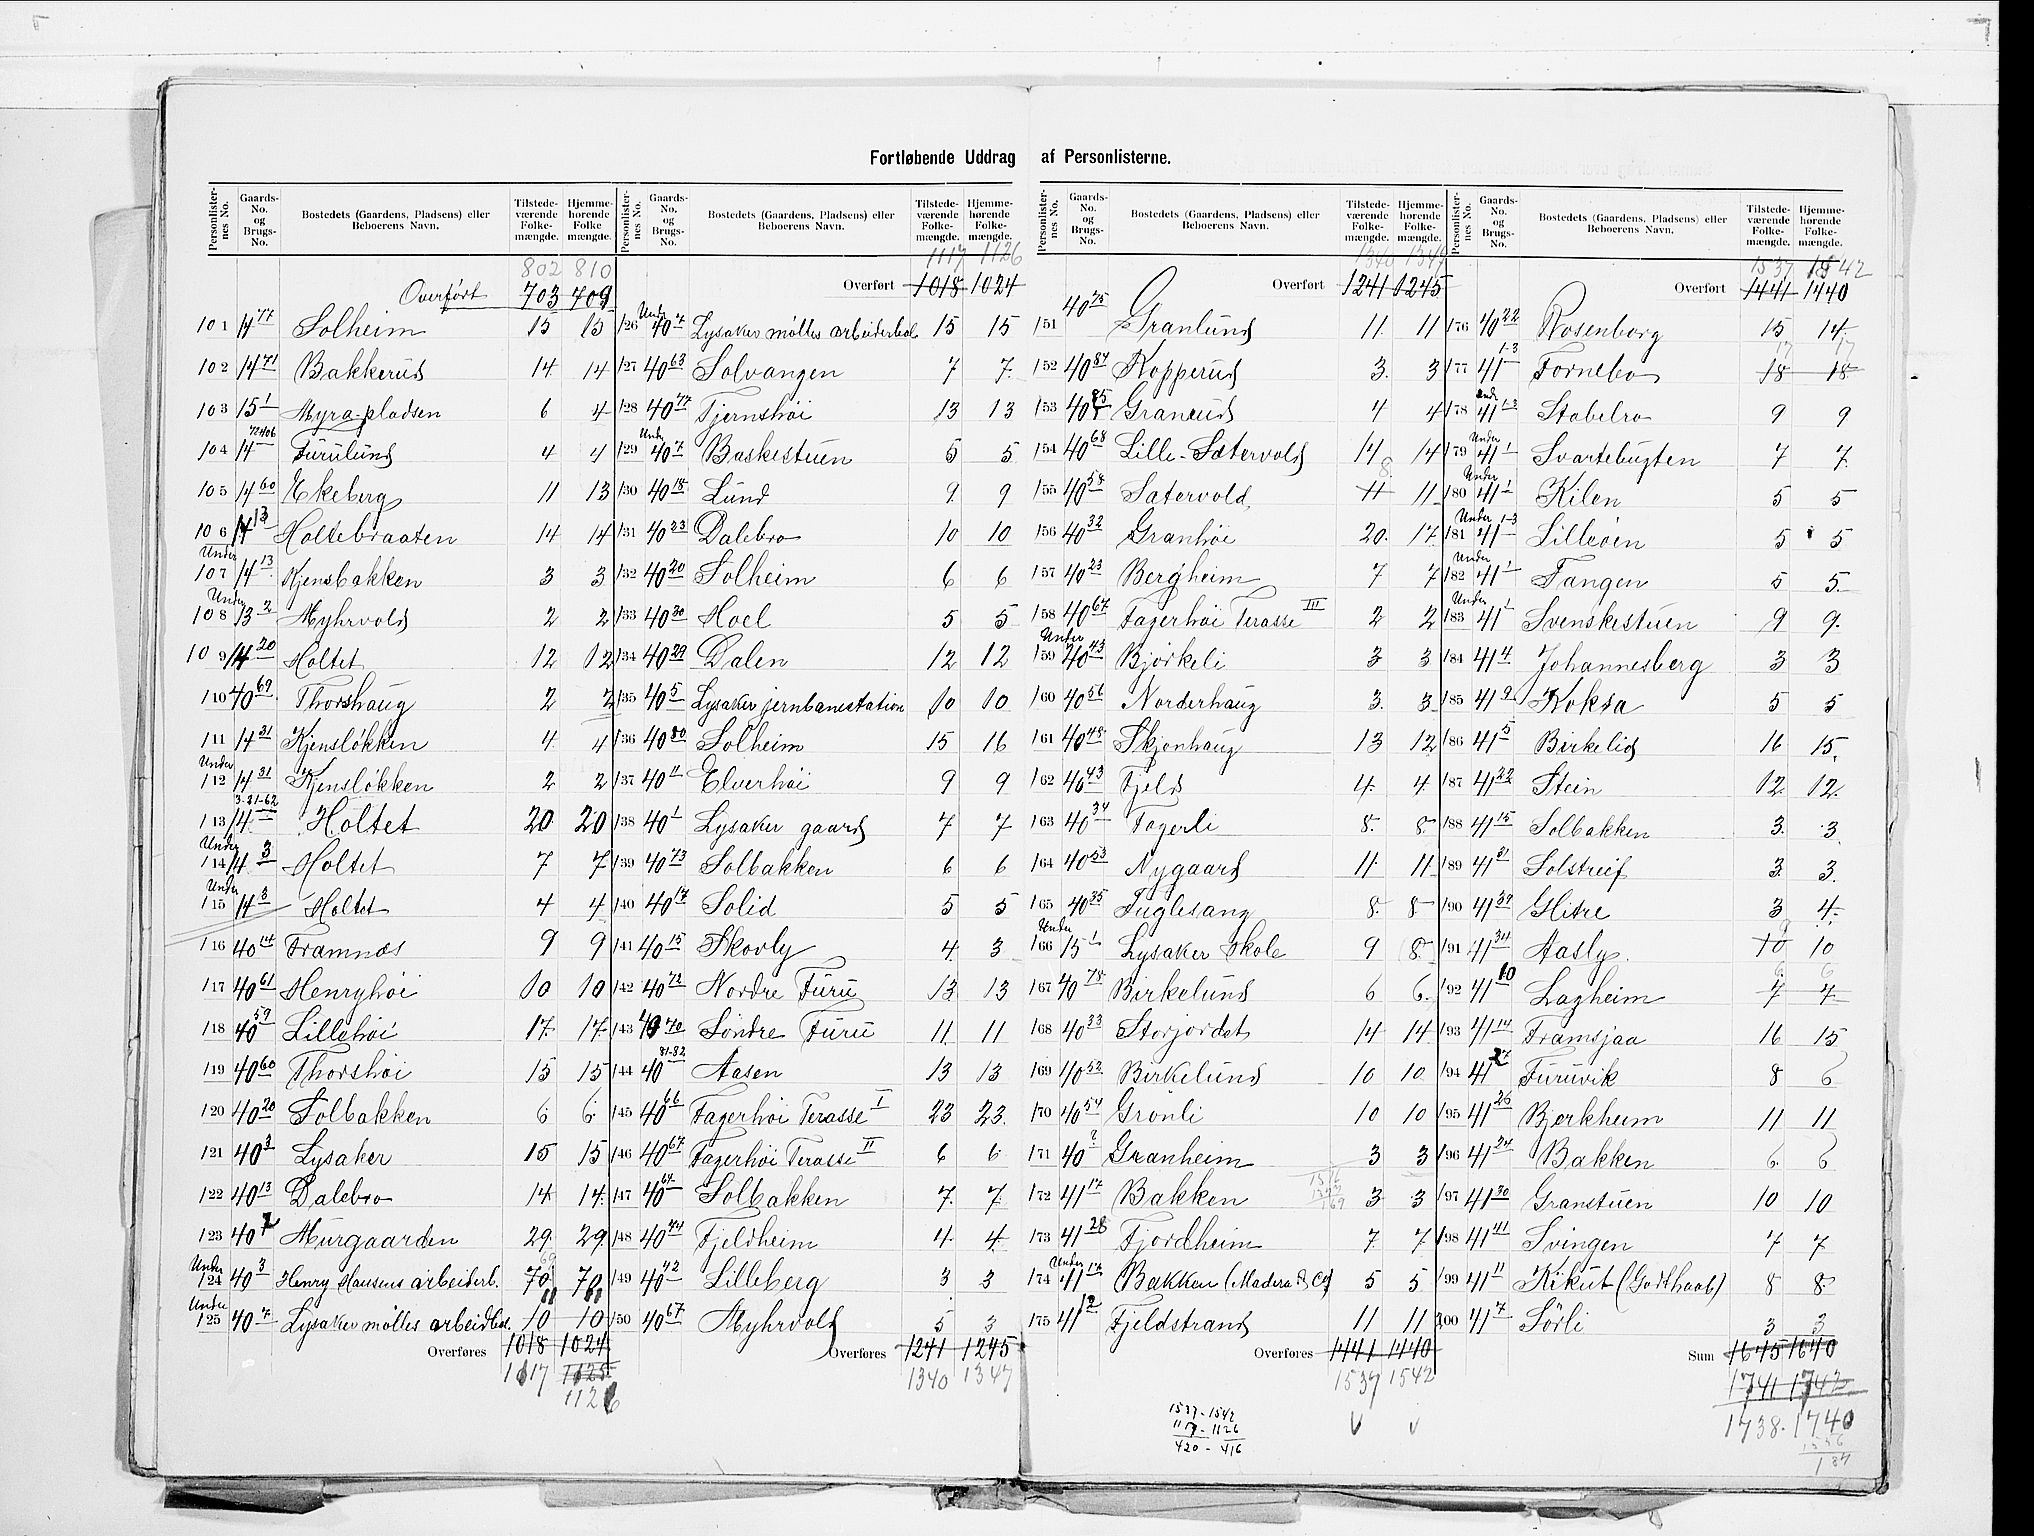 Fortløbende Uddrag af Personlisterne.
Personlister-nes No. Gaards-No. og Brugs-No. Bostedets (Gaardens, Pladsens) eller Beboerens Navn. Tilstede-værende Folke-mængde. Hjemme-hørende Folke-mængde.
802 810
Overført 703 709
101 14 77 Solheim 15 15
102 14 71 Bakkerud 14 14
103 15 1 Myra-pladsen 6 4
104 14 72 Furulund 4 4
105 14 60 Ekeberg 11 13
106 14 13 Holtebraaten 14 14
107 Under 14 13 Kjensbakken 3 3
108 Under 13 2 Myhrvold 2 2
109 14 20 Holtet 12 12
110 40 69 Thorshaug 2 2
111 14 31 Kjensløkken 4 4
112 Under 14 31 Kjensløkken 2 2
113 14 3-21-62 Holtet 20 20
114 Under 14 3 Holtet 7 7
115 Under 14 3 Holtet 4 4
116 40 14 Framnæs 9 9
117 40 61 Henryhøi 10 10
118 40 59 Lillehøi 17 17
119 40 60 Thorshøi 15 15
120 40 20 Solbakken 6 6
121 40 3 Lysaker 15 15
122 40 13 Dalebro 14 14
123 40 2 Murgaarden 29 29
124 Under 40 3 Henry Hansens arbeiderb. 70 70
125 Under 40 7 Lysaker møllers arbeidbol. 10 10
Overføres 1018 1024
1117 1125
1126
Personlister-nes No. Gaards-No. og Brugs-No. Bostedets (Gaardens, Pladsens) eller Beboerens Navn. Tilstede-værende Folke-mængde. Hjemme-hørende Folke-mængde.
1117 1126
Overført 1018 1024
126 Under 40 7 Lysaker møllers arbeiderbol 15 15
127 40 63 Solvangen 7 7
128 40 77 Tjernshøi 13 13
129 Under 40 7 Baskestuen 5 5
130 40 18 Lund 9 9
131 40 23 Dalebro 10 10
132 40 20 Solheim 6 6
133 40 30 Moel 5 5
134 40 29 Dalen 12 12
135 40 5 Lysaker jernbanestation 10 10
136 40 80 Solheim 15 16
137 40 11 Elverhøi 9 9
138 40 1 Lysaker gaard 7 7
139 40 73 Solbakken 6 6
140 40 17 Solid 5 5
141 40 15 Skovly 4 3
142 40 72 Nordre Furu 13 13
143 40 70 Søndre Furu 11 11
144 40 81-82 Aasen 13 13
145 40 66 Fagerhøi Terasse I 23 23
146 40 67 Fagerhøi Terasse II 6 6
147 40 64 Solbakken 7 7
148 40 44 Fjeldheim 4 4
149 40 42 Lilleberg 3 3
150 40 67 Myhrvold 5 3
Overføres 1241 1245
1340 1347
Personlister-nes No. Gaards-No. og Brugs-No. Bostedets (Gaardens, Pladsens) eller Beboerens Navn. Tilstede-værende Folke-mængde. Hjemme-hørende Folke-mængde.
1340 1347
Overført 1241 1245
151 40 75 Granlund 11 11
152 40 84 Kopperud 3 3
153 40 85 Granrud 4 4
154 40 68 Lille-Sætervold 14 14
8
155 40 58 Satervold 11 11
156 40 32 Granhøi 20 17
157 40 23 Bergheim 7 7
158 40 67 Fagerhøi Terasse III 2 2
159 Under 40 43 Bjørkeli 3 3
160 40 56 Norderhaug 3 3
161 40 48 Skjenhaug 13 12
162 40 43 Fjeld 4 4
163 40 34 Fagerli 8 8
164 40 53 Nygaard 11 11
165 40 35 Fuglesang 8 8
166 Under 15 1 Lysaker skole 9 8
167 40 78 Birkelund 6 6
168 40 33 Storjordet 14 14
169 40 52 Birkelund 10 10
170 40 54 Grønli 10 10
171 40 ? Granheim 3 3
172 41 17 Bakken 3 3
173 41 28 Fjordheim 7 7
174 Under 41 17 Bakken (Madera & Co) 5 5
175 41 12 Fjeldstrand 11 11
Overføres 1441 1440
1537 1542
1537-1542
1117-1126
420-416
Personlister-nes No. Gaards-No. og Brugs-No. Bostedets (Gaardens, Pladsens) eller Beboerens Navn. Tilstede-værende Folke-mængde. Hjemme-hørende Folke-mængde.
1537 1542
Overført 1441 1440
176 40 22 Rosenborg 15 14
17 17
177 41 1-3 Fornebo 18 18
178 Und. 41 1-3 Stabelro 9 9
179 Under 41 1 Svartebugten 7 7
180 Under 41 1 Kilen 5 5
181 Under 41 1-3 Lilleøen 5 5
182 Under 41 1 Tangen 5 5
183 Under 41 1 Svenskestuen 9 9
184 41 4 Johannesberg 3 3
185 41 9 Koksa 5 5
186 41 5 Birkelid 16 15
187 41 22 Stein 12 12
188 41 15 Solbakken 3 3
189 41 31 Solstreif 3 3
190 41 37 Glitre 3 4
9
191 41 34 Aasly 10 10
6 6
192 41 10 Lagheim 7 7
193 41 14 Framsjaa 16 15
194 41 27 Furuvik 8 6
195 41 26 Bjerkheim 11 11
196 41 24 Bakken 6 6
197 41 30 Granstuen 10 10
198 41 41 Svingen 7 7
199 41 11 Kikut (Godthaab) 8 8
200 41 7 Sørli 3 3
Sum 1645 1640
1741 1742
1738 1740